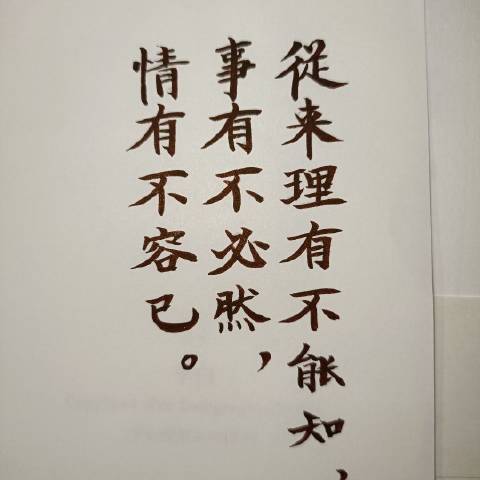 從来理有不能知，
事有不必然，
情有不容已。